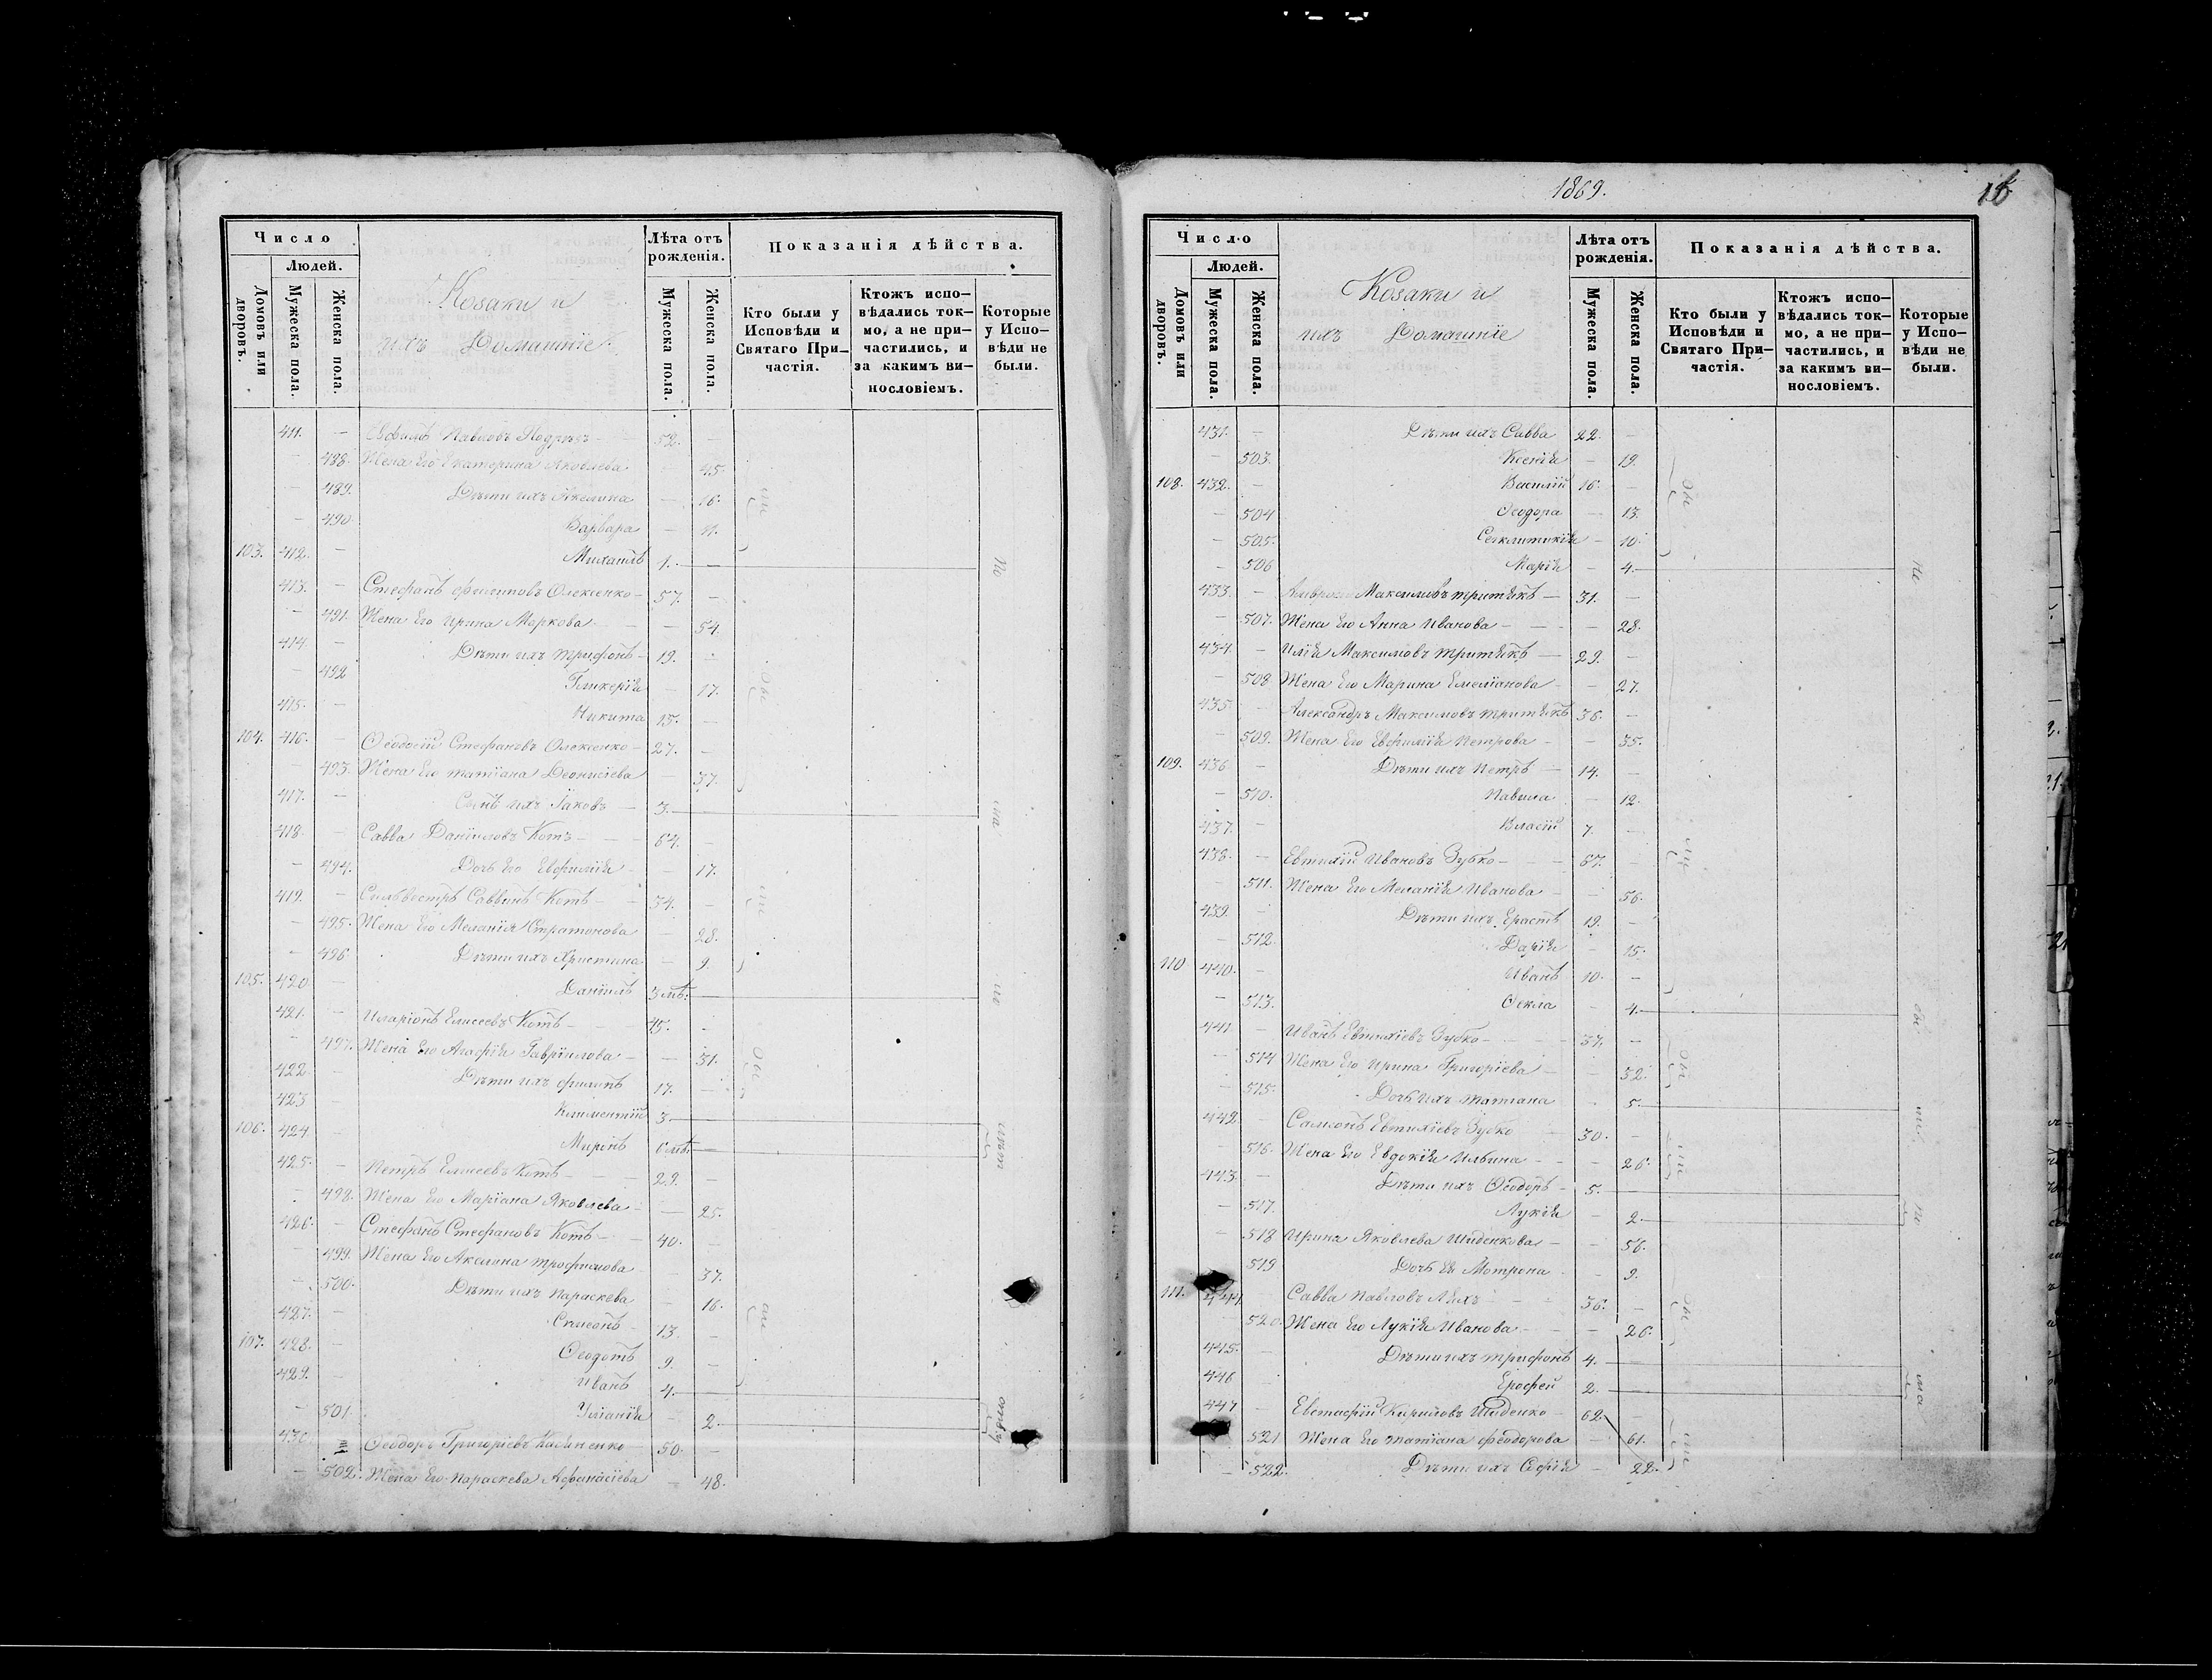 Число
Людей.
Домовъ или дворовъ.
Мужеска пола.
Женска пола.
Козаки и
ихъ Домашніе
Лѣта отъ рожденія.
Мужеска пола.
Женска пола.
Показанія дѣйства.
Кто были у Исповѣди и Святаго Причастія.
Ктожъ исповѣдались токмо, а не причастились, и за какимъ винословіемъ.
Которые у Исповѣди не были.
411. — Павловъ 52. —
— 488. Жена Его Екатерина Яковлева — 45.
— 489. Дѣти ихъ Акелина — 16.
— 490 Варвара — 11.
103. 412. — Михаилъ 1. —
413. — Стефанъ Филиповъ Олексенко — 57. —
— 491. Жена Его Ирина Маркова — 54.
414. — Дѣти ихъ Трифонъ — 19. —
— 492 Гликерія — 17.
415. — Никита 15. —
104. 416. — Ѳеодосій Стефановъ Олексенко — 27. —
— 493. Жена Его Татіана Деонисіева — 37.
417. — Сынъ ихъ Іаковъ — 3.
418. — Савва Даніиловъ Котъ — 64. —
— 494. Дочь Его Евфимія — 17.
419. — Сильвестръ Саввинъ Котъ — 34. —
— 495. Жена Его Меланія Стратонова — 28.
— 496 Дѣти ихъ Христина — 9.
105. 420 — Даніилъ 3 мѣ.
421. — Иларіонъ Елисеевъ Котъ — 45. —
— 497. Жена Его Агафія Гавріилова — 31.
422 — Дѣти ихъ Филипъ 17. —
423 — Климентій 3
106. 424. — Миронъ 6 мѣ. —
425. — Петръ Елисеевъ Котъ — 29. —
— 498. Жена Его Маріана Яковлева — 25.
426. — Стефанъ Стефановъ Котъ — 40. —
— 499. Жена Его Акелина Трофимова — 37.
— 500. Дѣти ихъ Параскева — 16.
427. — Симеонъ — 13. —
107. 428. — Ѳеодотъ 9. —
429. — Иванъ 4.
— 501. Уліанія — 2.
430 Ѳеодоръ Григоріевъ 50. —
— 502. Жена Его Параскева Афанасіева — 48.
1869.
Число
Людей.
Домовъ или дворовъ.
Мужеска пола.
Женска пола.
Козаки и
ихъ Домашніе
Лѣта отъ рожденія.
Мужеска пола.
Женска пола.
Показанія дѣйства.
Кто были у Исповѣди и Святаго Причастія.
Ктожъ исповѣдались токмо, а не причастились, и за какимъ винословіемъ.
Которые у Исповѣди не были.
431. — Дѣти ихъ Савва 22. —
— 503. Ксенія — 19.
108. 432. — Василій 16. —
— 504 Ѳеодора — 13.
— 505. — 10.
— 506 Марія — 4.
433. — Максимовъ Притыкъ — 31. —
— 507. Жена Его Анна Иванова — 28.
434. — Илія Максимовъ Притыкъ — 29. —
— 508 Жена Его Марина Емеліанова — 27.
435. — Александръ Максимовъ Притыкъ 36. —
— 509. Жена Его Евфимія Петрова — 35.
109. 436 — Дѣти ихъ Петръ — 14. —
— 510. Павила — 12.
437. — Власій 7. —
438. — Евтихій Ивановъ Зубко — 67. —
— 511. Жена Его Меланія Иванова — 56.
439. — Дѣти ихъ Ерастъ 19. —
— 512. Дарія — 15.
110 440. — Иванъ 10. —
— 513. Ѳекла — 4.
441 — Иванъ Евтихіевъ Зубко — 37. —
— 514 Жена Его Ирина Григоріева — 32.
— 515. Дочь ихъ Татіана — 5.
442. — Самсонъ Евтихіевъ Зубко 30. —
— 516. Жена Его Евдокія Ильина — 26.
443. — Дѣти ихъ Ѳеодоръ — 5.
— 517. Лукія — 2.
— 518 Ирина Яковлева Шиденкова — 56.
519 Дочь Ея Мотрона — 9.
111. 444. Савва Павловъ Ляхъ — 36. —
520. Жена Его Лукія Иванова — 26.
445. — Дѣти ихъ Трифонъ 4.
446 — Ерофей 2.
447 — Евстафій Кириловъ Шиденко — 62. —
521 Жена Его Татіана Феодорова — 61.
— 522. Дѣти ихъ Софія — 22.